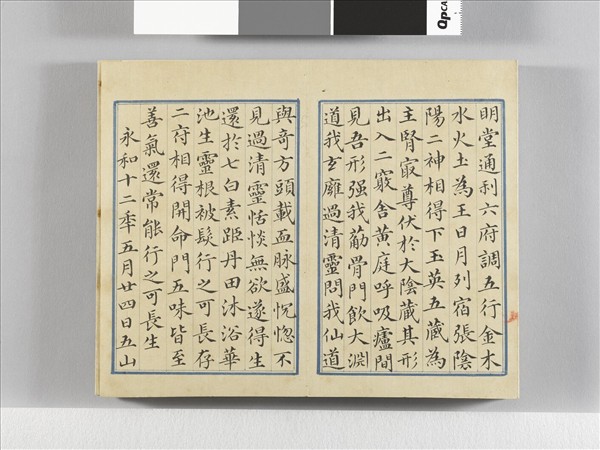 明堂通利六府調五行金木
水火土為王日月列宿張陰
陽二神相得下玉英五藏為
主腎冣尊伏於大陰藏其形
出入二竅舍黄庭呼吸廬間
見吾形强我筋骨門飲大淵
道我玄癰過清靈問我仙道
與奇方頭載血脉盛怳惚不
見過清靈恬惔無欲遂得生
還於七白素距丹田沐浴華
池生靈根被髮行之可長存
二府相得開命門五味皆至
善氣還常能行之可長生
永和十二年五月廿四日五山
QpCA